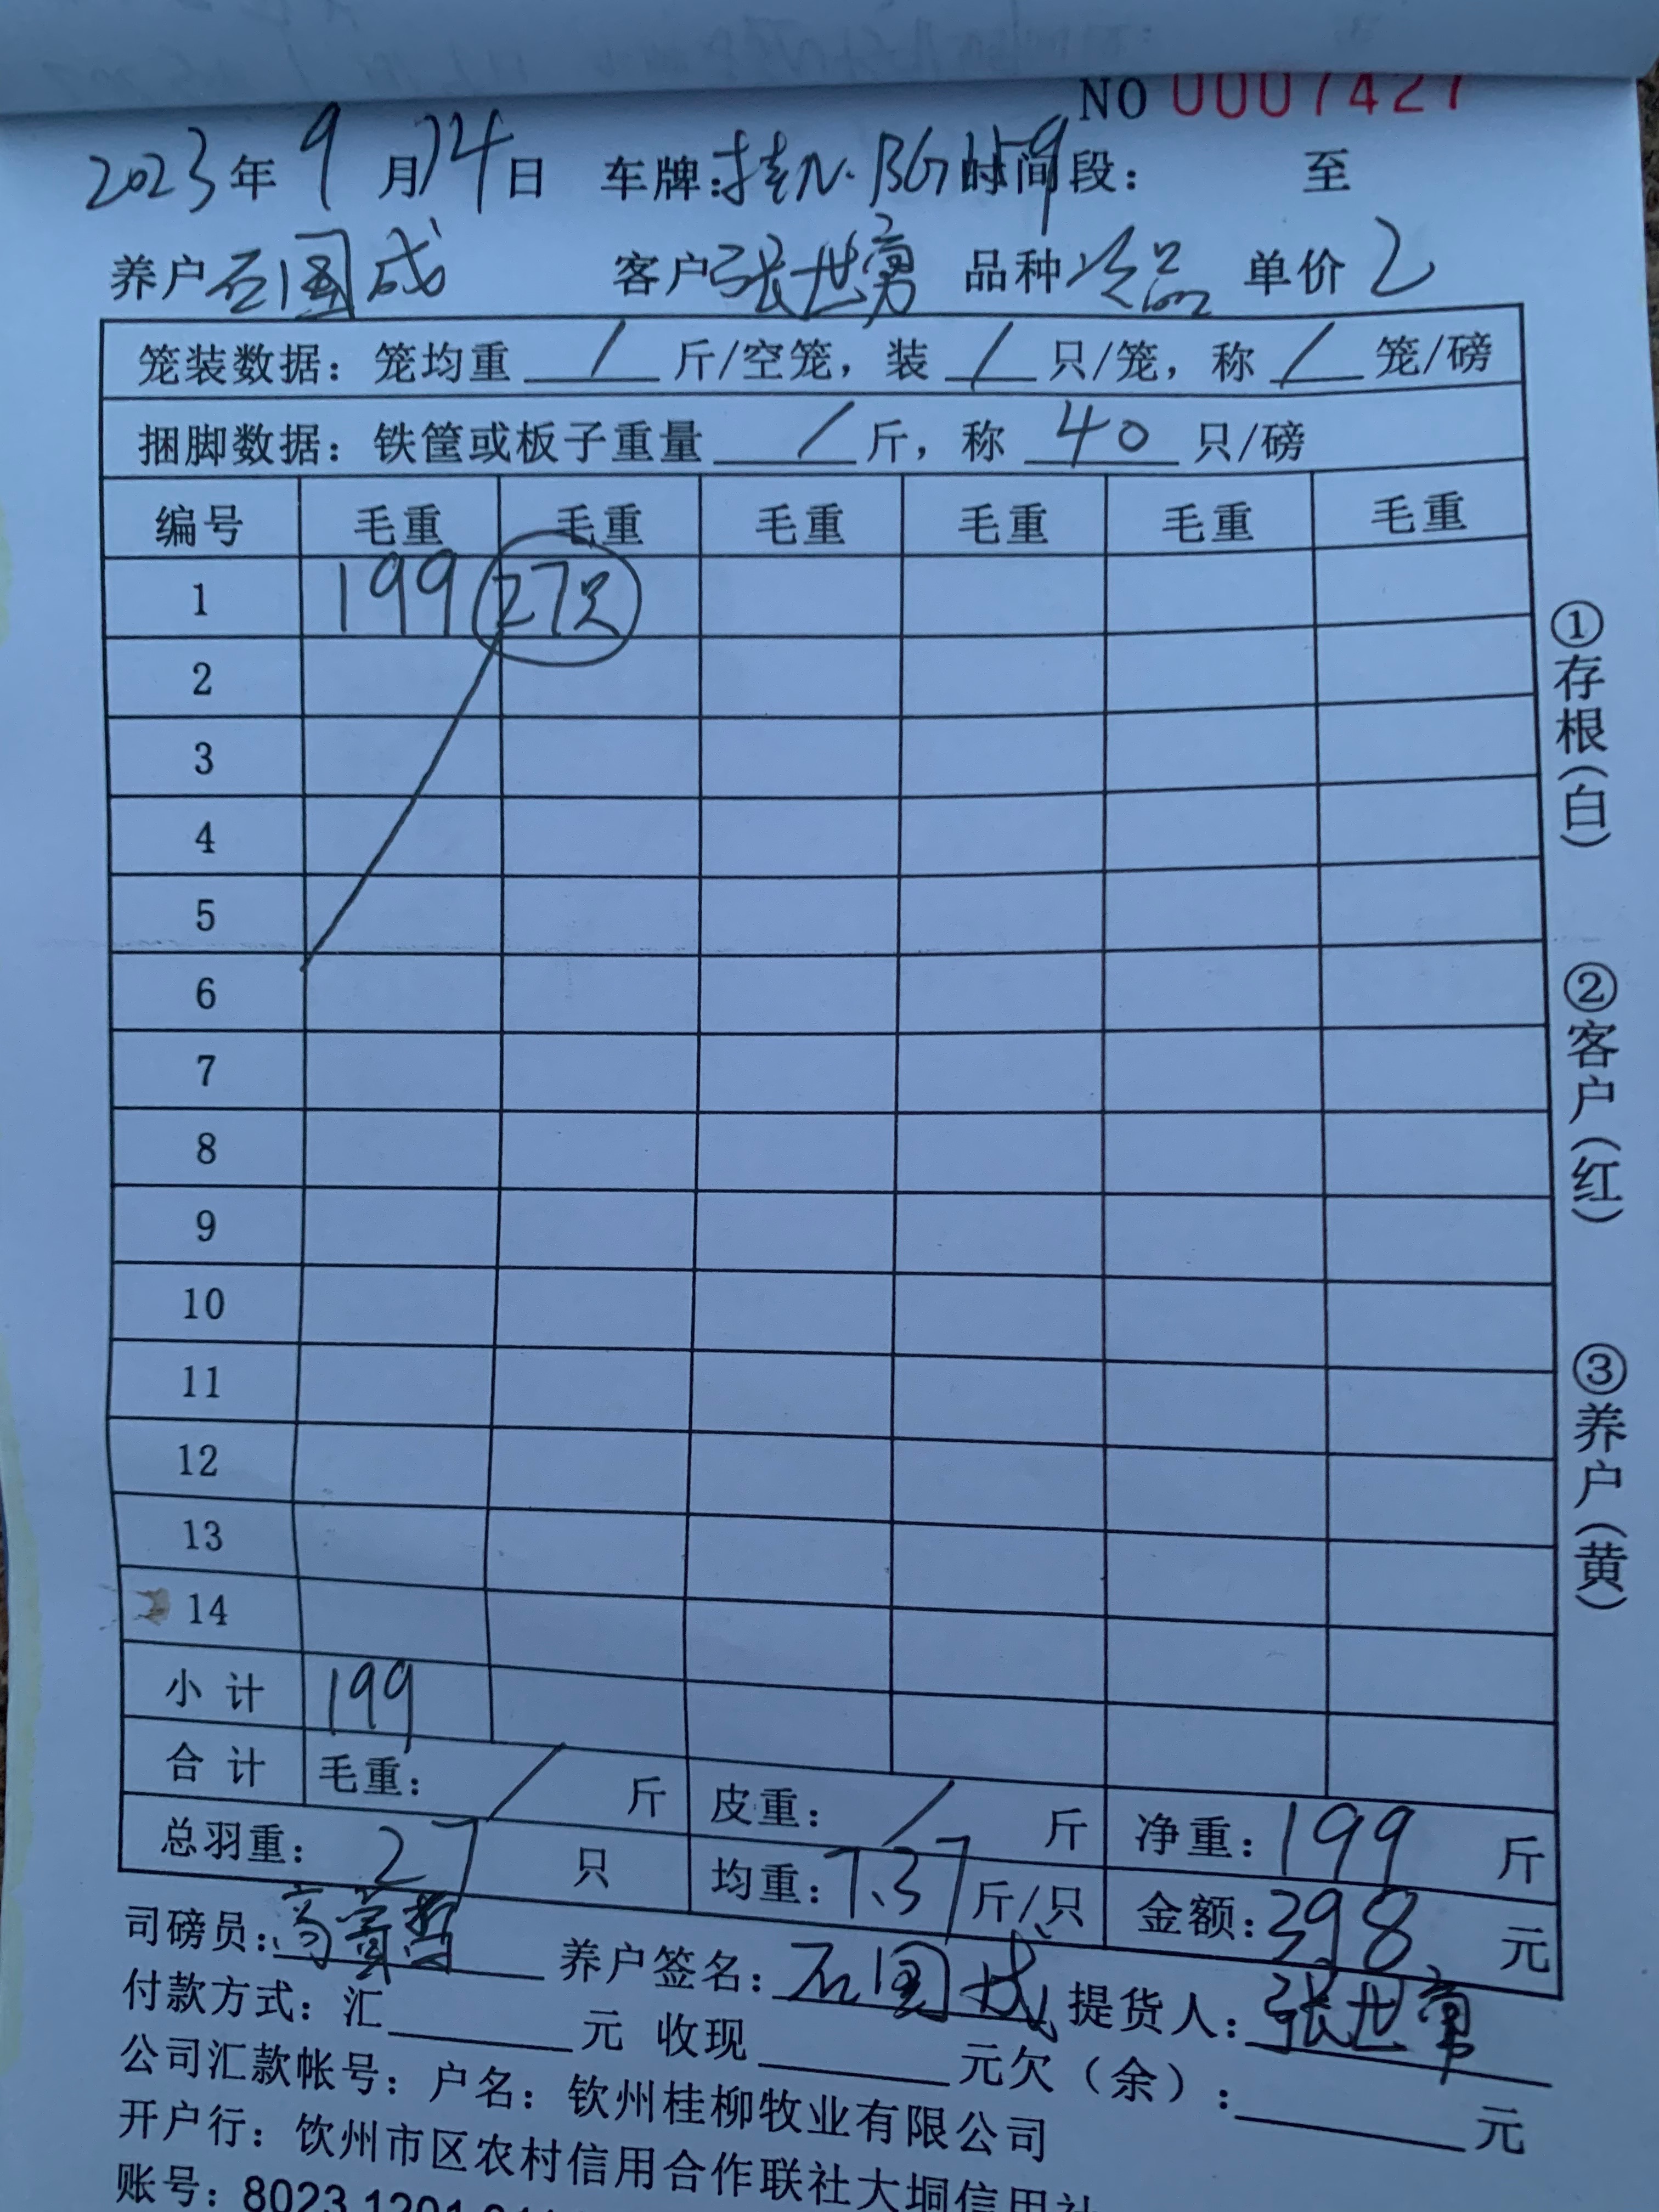 NO 0007427
2023年9月14日 车牌:桂N·BG1159 时间段: 至
养户石国成 客户张世勇 品种次品 单价2
笼装数据: 笼均重 / 斤/空笼, 装 / 只/笼, 称 / 笼/磅
捆脚数据: 铁筐或板子重量 / 斤, 称 40 只/磅
编号 毛重 毛重 毛重 毛重 毛重 毛重
1 199 27只
2
3
4
5
6
7
8
9
10
11
12
13
14
小计 199
合计 毛重: / 斤 皮重: / 斤 净重: 199 斤
总羽重: 27 只 均重: 7.37 斤/只 金额: 398 元
司磅员: 养户签名: 石国成 提货人: 张世勇
付款方式: 汇 元 收现 元欠(余): 元
公司汇款帐号: 户名: 钦州桂柳牧业有限公司
开户行: 钦州市区农村信用合作联社大垌信用社
账号: 8023 1201
①存根(白)
②客户(红)
③养户(黄)